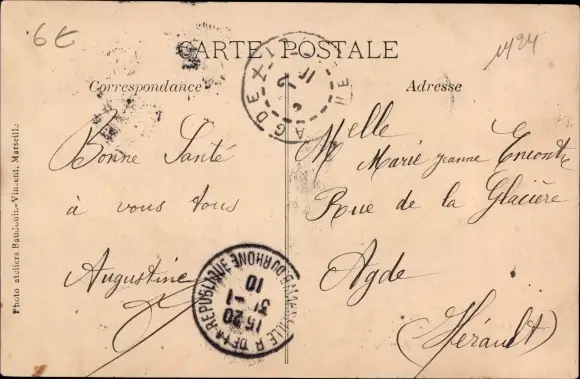 6€
1424
CARTE POSTALE
Correspondance
Adresse
Bonne Santé
à vous tous
Augustine
Melle
Marie Jeanne
Rue de la Glacière
Agde
(Hérault)
Photo ateliers Baudouin-Vincent, Marseille
AGDE
MARSEILLE R. DE LA REPUBLIQUE
15 20
31 -1
10
B. DU RHONE